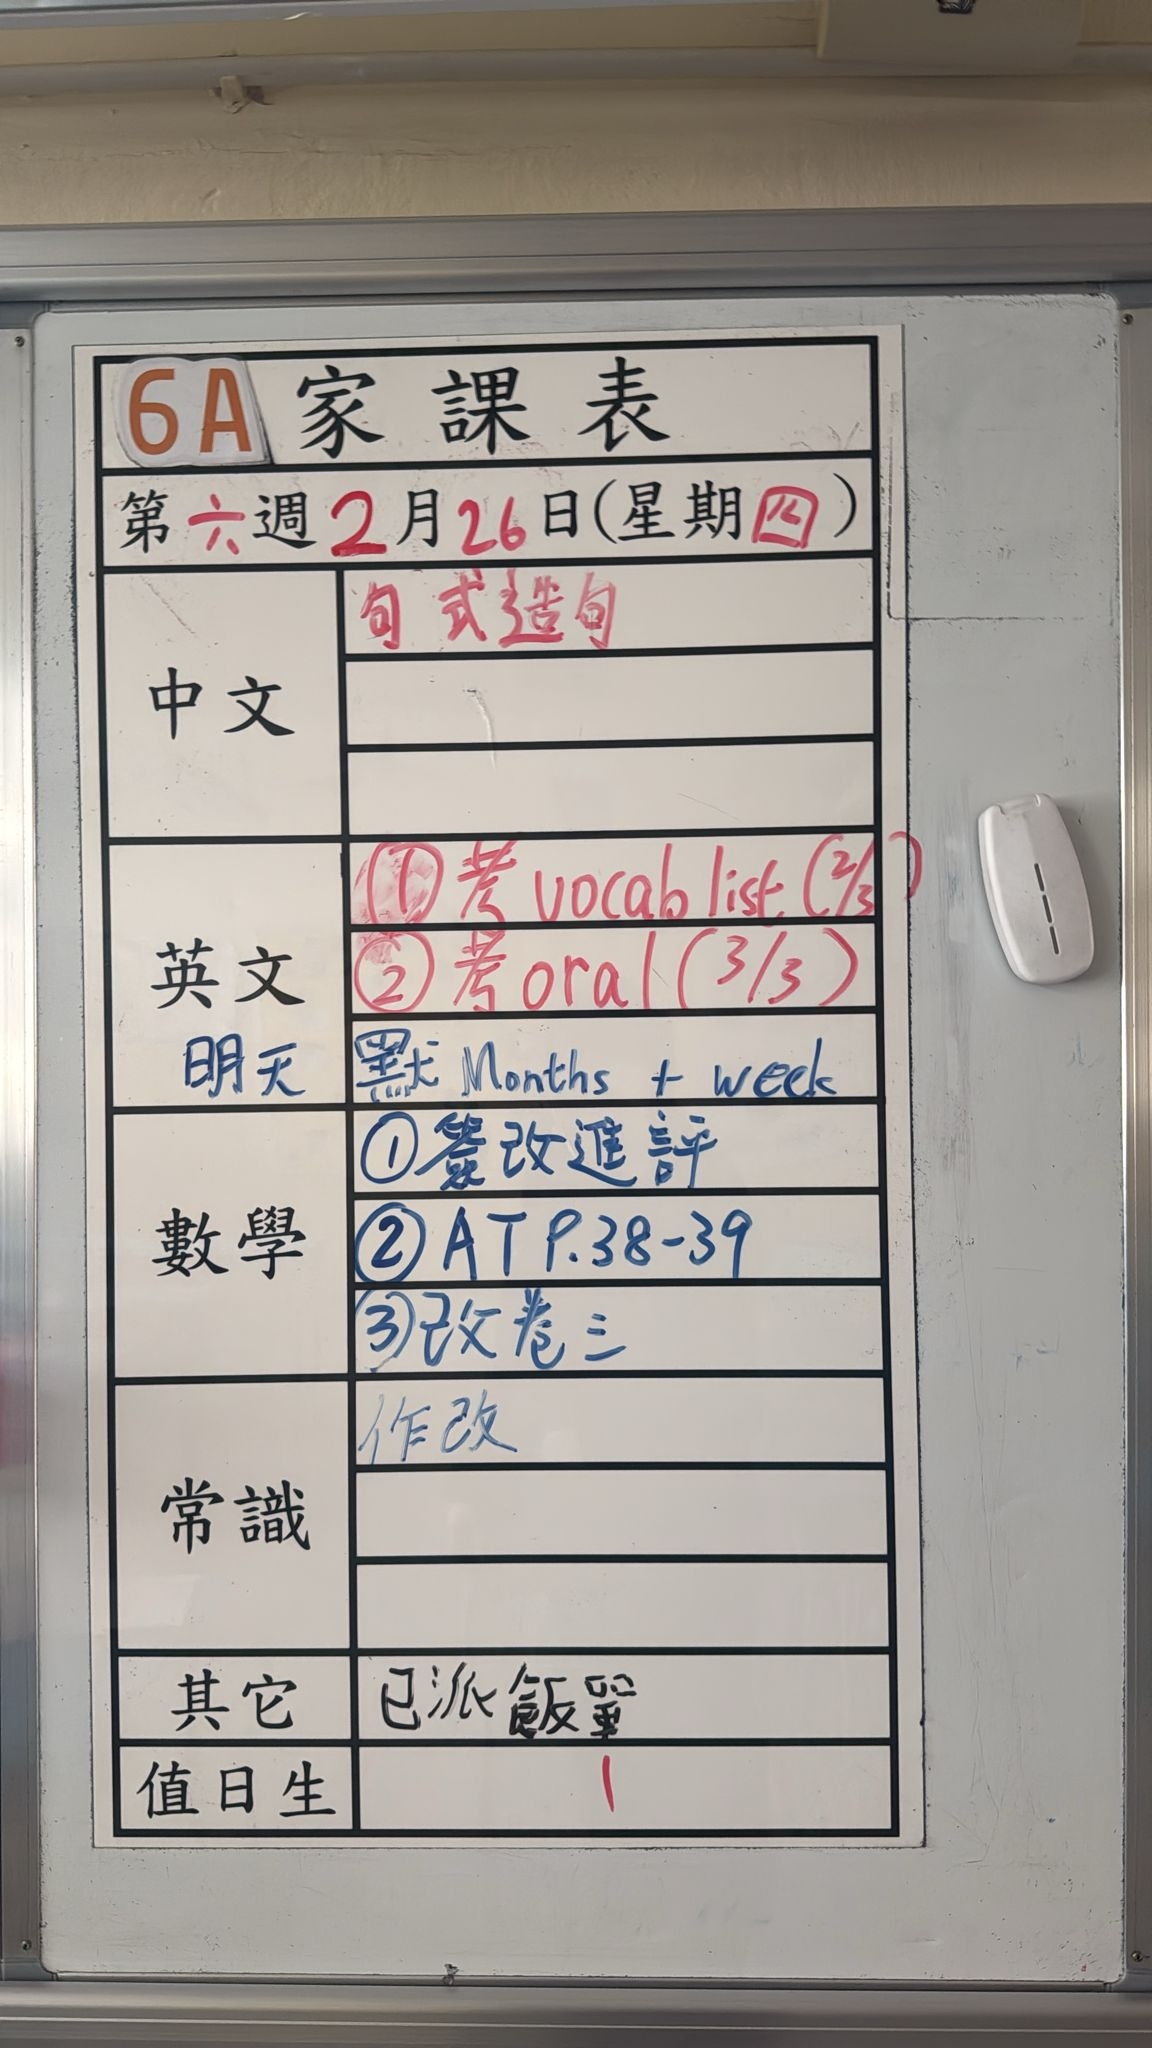 6A 家課表
第六週2月26日(星期四)
中文
句式造句
英文
①考 vocab list (2/3)
②考 oral (3/3)
明天 默 Months + week
數學
①簽改進評
②AT P.38-39
③改卷三
常識
作改
其它 已派飯單
值日生 1